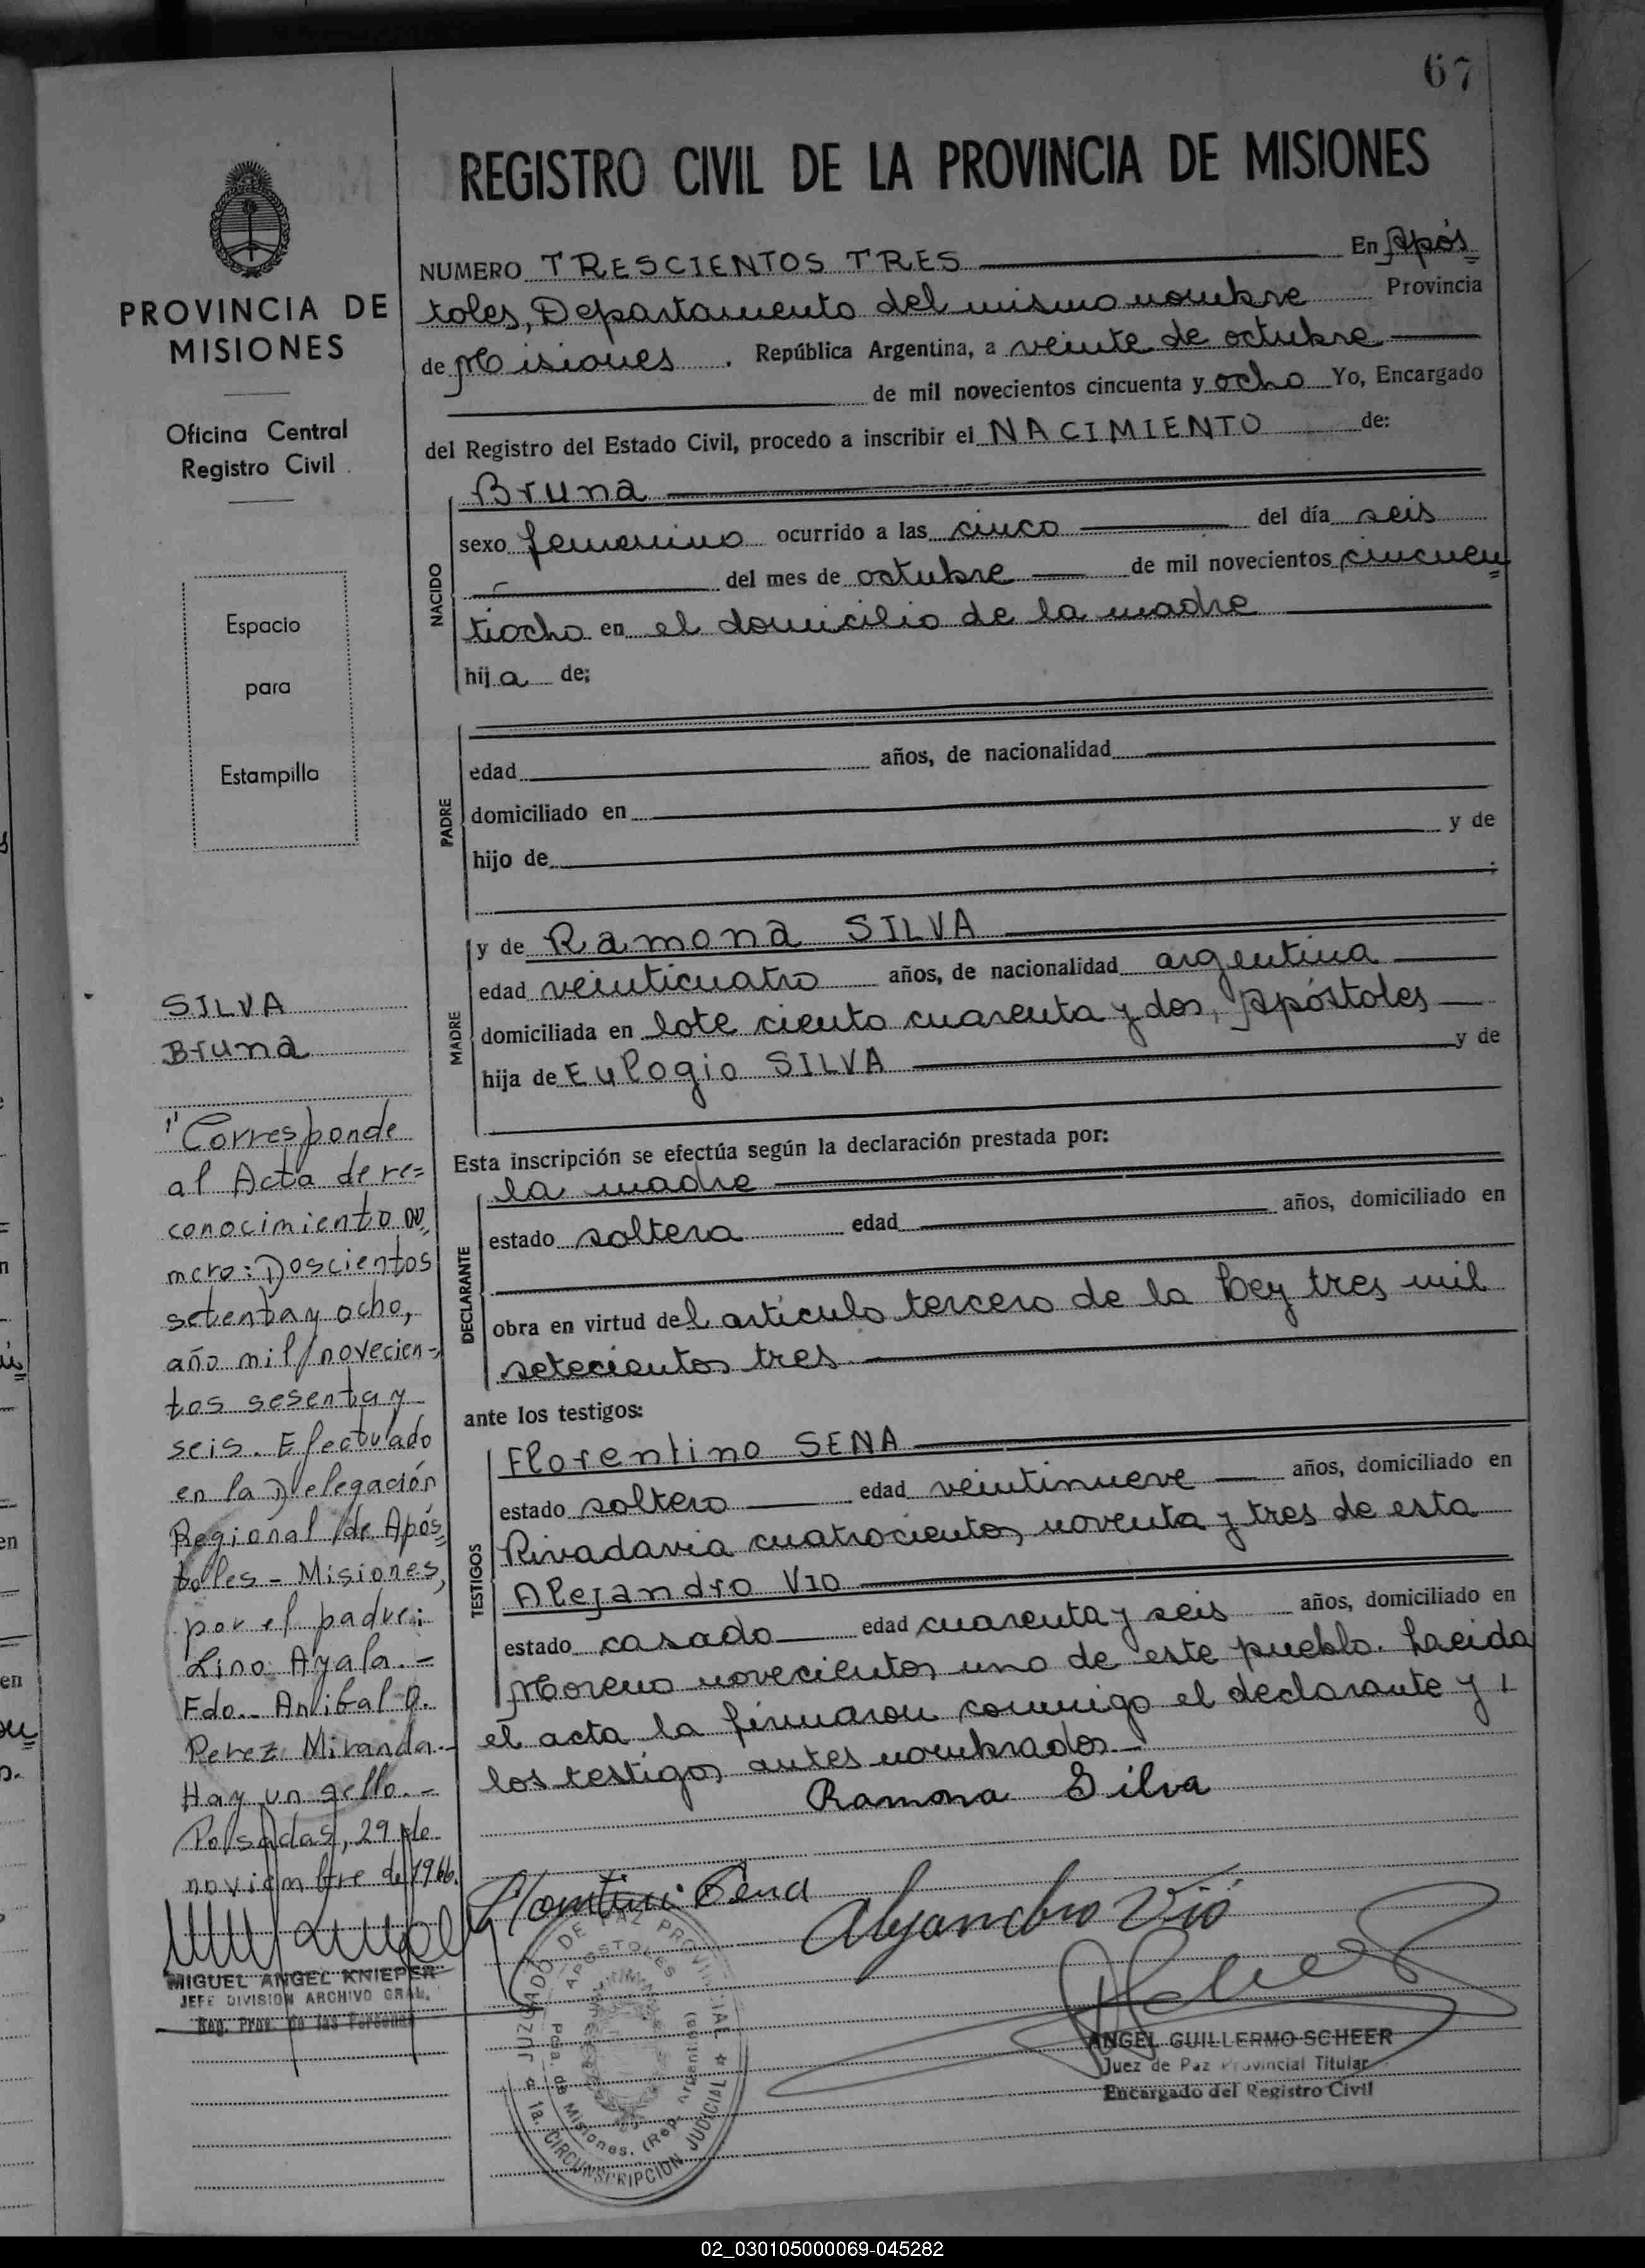 67
REGISTRO CIVIL DE LA PROVINCIA DE MISIONES
NUMERO TRESCIENTOS TRES En Após
toles, Departamento del mismo nombre Provincia
de Misiones. República Argentina, a veinte de octubre
de mil novecientos cincuenta y ocho Yo, Encargado
del Registro del Estado Civil, procedo a inscribir el NACIMIENTO de:
NACIDO
Bruna
sexo femenino ocurrido a las cinco del día seis
del mes de octubre de mil novecientos cincuen
tiocho en el domicilio de la madre
hija de;
PADRE
edad años, de nacionalidad
domiciliado en
hijo de y de
MADRE
y de Ramona SILVA
edad veinticuatro años, de nacionalidad argentina
domiciliada en lote ciento cuarenta y dos, Apóstoles
hija de Eulogio SILVA y de
Esta inscripción se efectúa según la declaración prestada por:
DECLARANTE
la madre
estado soltera edad años, domiciliado en
obra en virtud del artículo tercero de la Ley tres mil
setecientos tres
ante los testigos:
TESTIGOS
Florentino SENA
estado soltero edad veintinueve años, domiciliado en
Rivadavia cuatrocientos noventa y tres de esta
Alejandro VIO
estado casado edad cuarenta y seis años, domiciliado en
Moreno novecientos uno de este pueblo. Leida
el acta la firmaron conmigo el declarante y
los testigos antes nombrados.-
Ramona Silva
Alejandro Vió
JUZGADO DE PAZ PROVINCIAL
APOSTOLES
Pcia. de Misiones. (Rep. Argentina)
1a. CIRCUNSCRIPCION JUDICIAL
ANGEL GUILLERMO SCHEER
Juez de Paz Provincial Titular
Encargado del Registro Civil
PROVINCIA DE
MISIONES
Oficina Central
Registro Civil
Espacio
para
Estampilla
SILVA
Bruna
"Corresponde
al Acta de re=
conocimiento nú
mero: Doscientos
setenta y ocho,
año mil novecien-
tos sesenta y
seis. Efectuado
en la Delegación
Regional de Após
toles - Misiones,
por el padre:
Lino Ayala.-
Fdo.- Anibal O.
Perez Miranda.-
Hay un sello.-
Posadas, 29 de
noviembre de 1966.
MIGUEL ANGEL KNIEPER
JEFE DIVISION ARCHIVO GRAL.
Reg. Prov. de las Personas
02_030105000069-045282